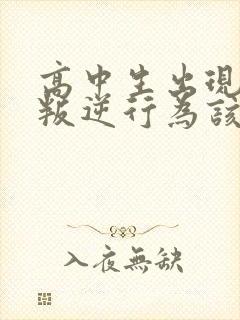 高中生出現
叛逆行為該
入夜無缺